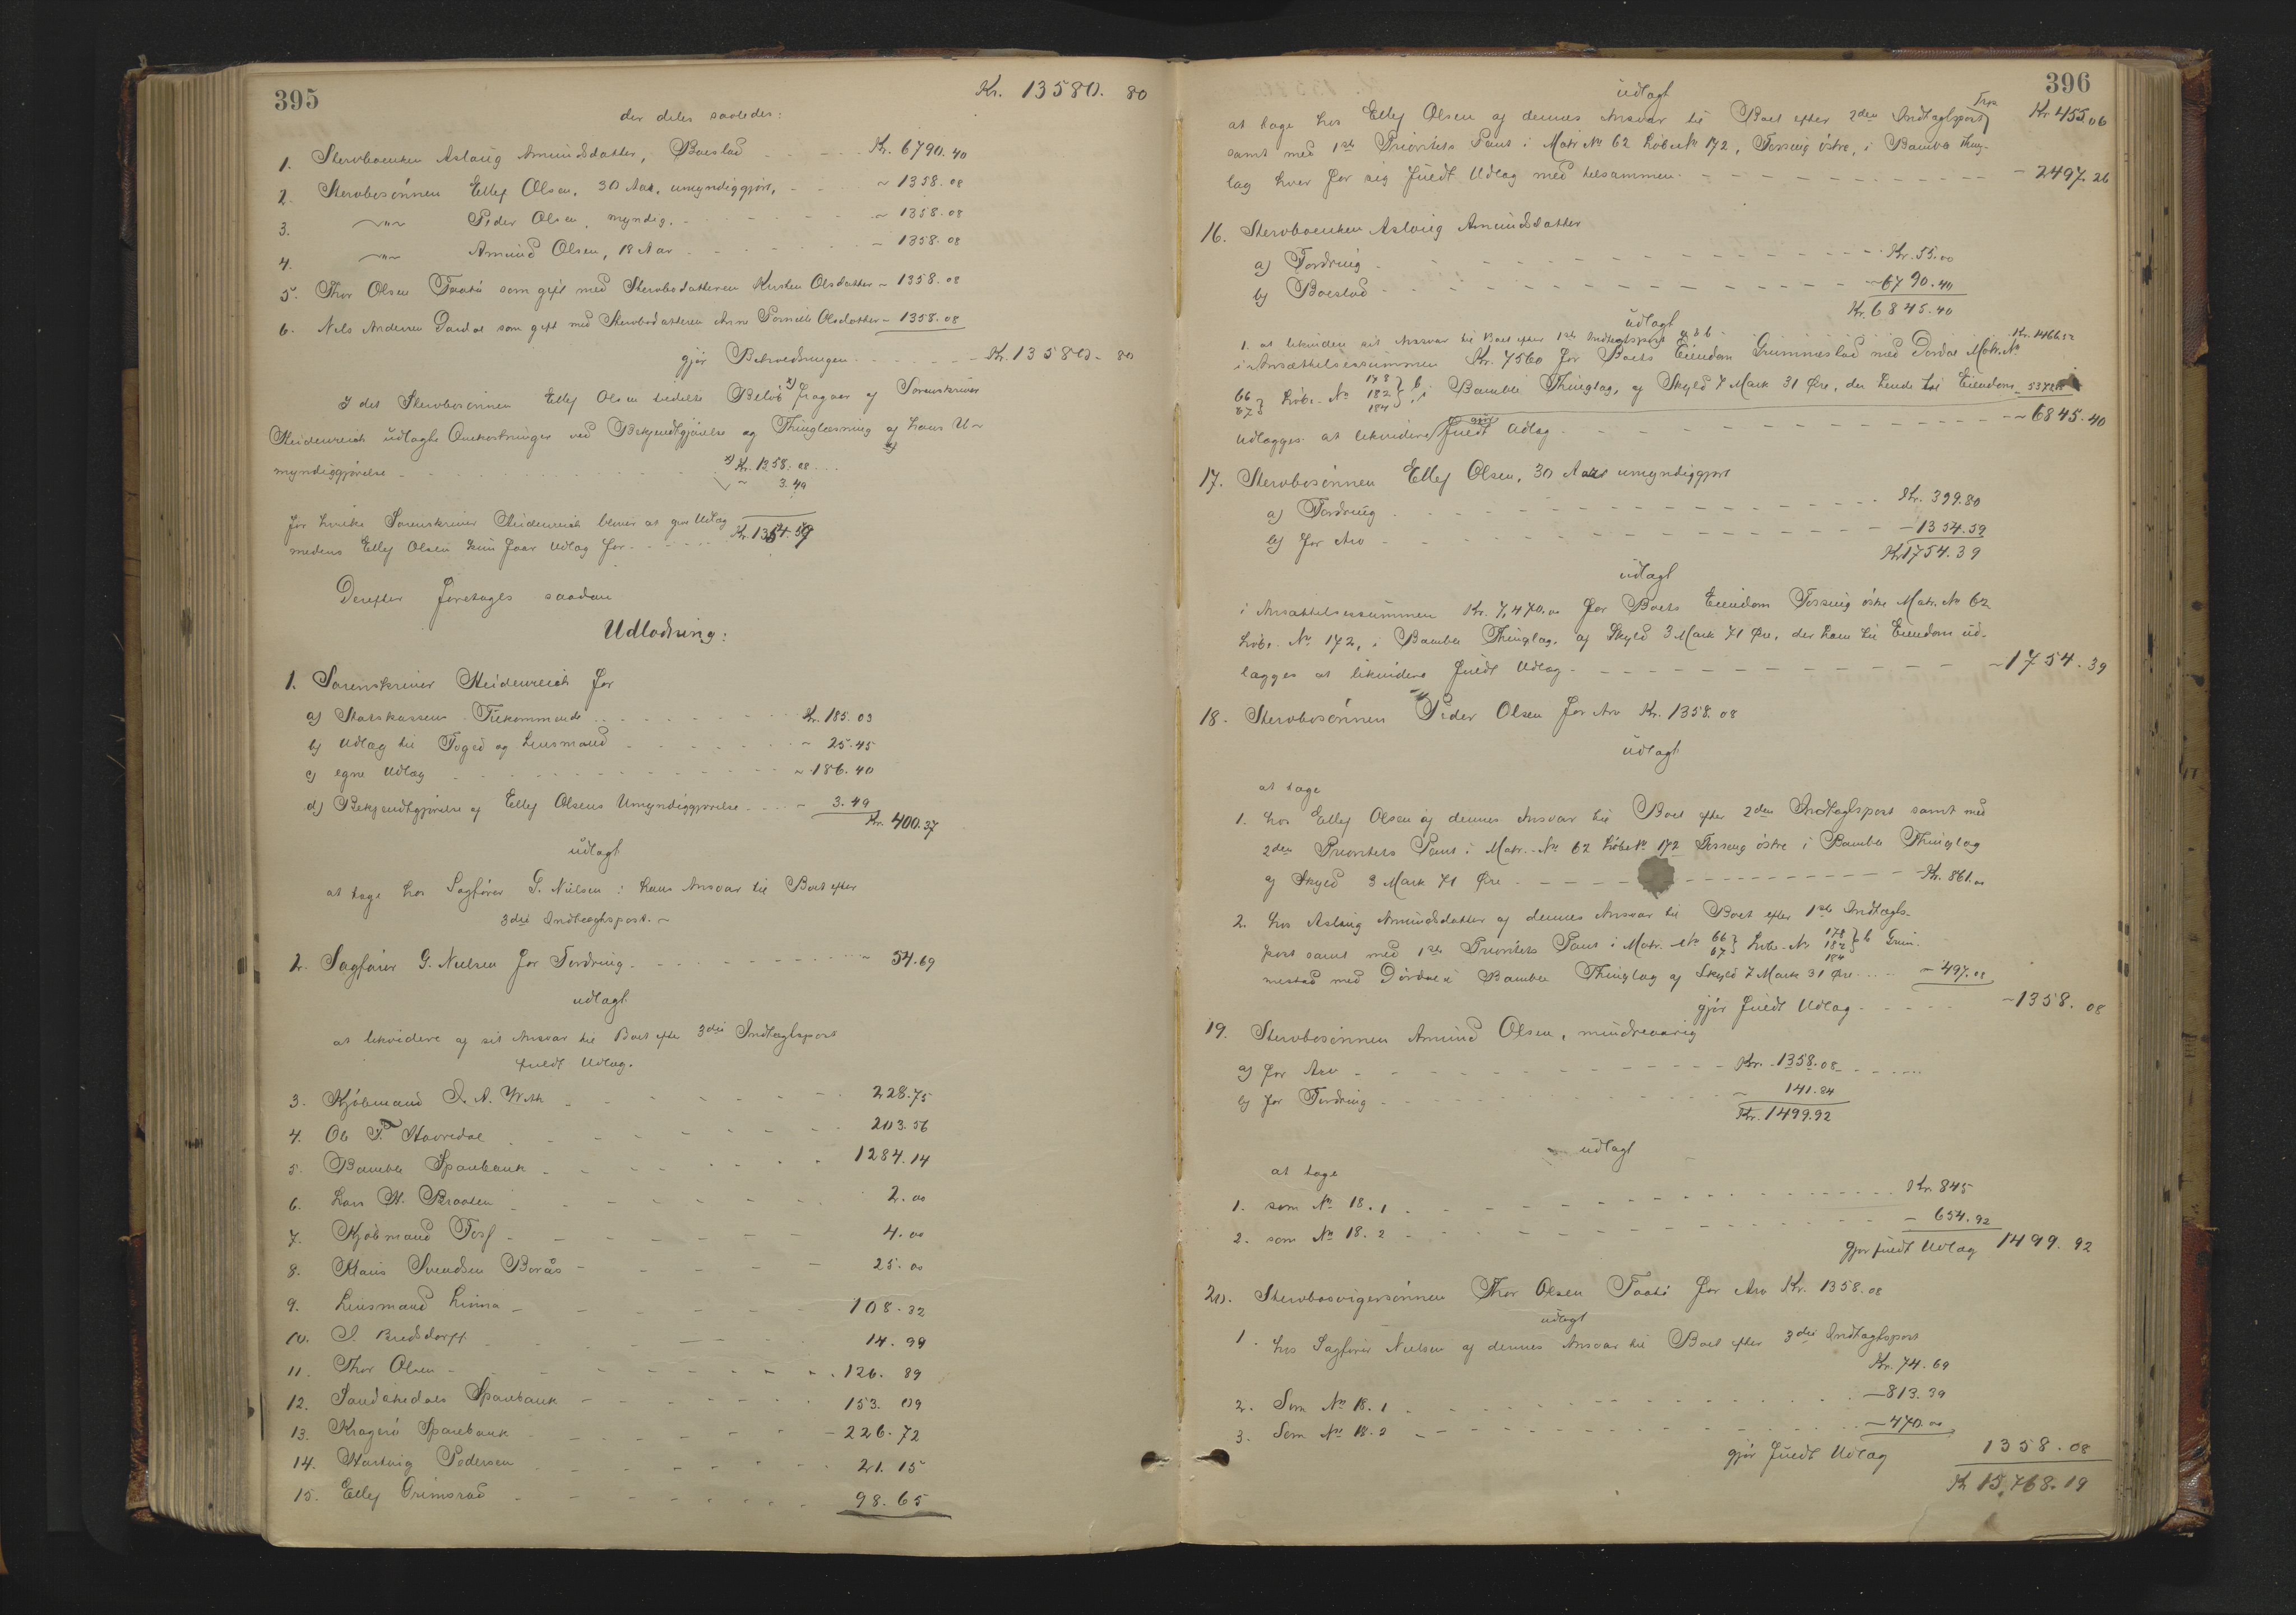 395
Kr. 13580. 80
der deles saaledes:
1. Stervboenken Aslaug Amundsdatter, Boeslod Kr. 6790.40
2. Stervbosönnen Ellef Olsen, 30 Aar, umyndiggjort, - ~ 1358.08
3. ~"~ Peder Olsen, myndig. - ~ 1358.08
4. ~"~ Amund Olsen, 18 Aar - - 1358.08
5. Thor Olsen Taatö som gift med Stervbodatteren Kirsten Olsdatter ~ 1358.08
6. Nils Andersen Dördal som gift med Stervbodatteren Anne Pernille Olsdatter - 1358.08
gjör Behredningen - Kr. 13580. 80
I det Stervbosönnen Ellef Olsen tildelte Belöb x) fragaar af Sorenskriver
Heidenreich udlagte Omkostninger ved Bekjendtgjörelse og Thinglæsning af hans U~
myndiggjörelse - x) Kr. 1358.08
~ 3.49
for hvilke Sorenskriver Heidenreich bliver at gjøre Udlæg
medens Ellef Olsen kun faar Udlæg for - Kr. 1354.59
Derefter foretages saadan
Udlodning:
1. Sorenskriver Heidenreich for
a) Statskassens Tilkommende - Kr. 185.03
b) Udlæg til Foged og Lensmand - ~ 25.45
c) egne Udlæg - ~ 186.40
d) Bekjendtgjörelse af Ellef Olsens Umyndiggjörelse - ~ 3.49
Kr. 400.37
udlagt
at tage hos Sagförer G. Nielsen i hans Ansvar til Boet efter
3die Indtægtspost. ~
2. Sagförer G. Nielsen for Fordring. - ~ 54.69
udlagt
at likvidere af sit Ansvar til Boet efter 3die Indtægtspost
fuldt Udlæg.
3. Kjöbmand J. A. Wirth - 228.75
4. Ole T. Stavredal - 203.56
5. Bamble Sparebank - 1284.14
6. Lars H. Braaten - 2.00
7. Kjöbmand Fosf - 4.00
8. Maris Svendsen Borås - 25.00
9. Lensmand Linna - 108.32
10. J. Bredsdorff - 14.99
11. Thor Olsen - 126. 89
12. Sandökedals Sparebank - 153. 09
13. Kragerö Sparebank - 226.72
14. Hartvig Pedersen - 21.15
15. Ellef Grimsrød - 98.65
396
udlagt
at tage hos Ellef Olsen af dennes Ansvar til Boet efter 2den Indtægtspost Kr 455.06
samt med 1ste Prioritets Pant i Matr No 62 Löbe No 172, Fossing östre, i Bamble Thing-
lag hver for sig fuldt Udlæg med tilsammen - 2497.26
16. Stervboenken Aslaug Amundsdatter
a) Fordring - Kr. 55.00
b) Boeslod - ~ 6790.40
Kr. 6845.40
udlagt
1. at likvidere sit Ansvar til Boet efter 1ste Indtægtspost Kr. 1466.52
i Ansættelsessummen Kr. 7560 for Boets Eiendom Grummestad med Dördal Matr. No
66 67} Löbe-No 178 182 184} b, i Bamble Thinglag, af Skyld 7 Mark 31 Öre, der hende til Eiendom
udlægges at likvidere gjör fuldt Udlæg - ~ 6845.40
17. Stervbosönnen Ellef Olsen, 30 Aar umyndiggjort
a) Fordring - Kr. 399.80
b) for Arv - ~ 1354.59
Kr 1754.39
udlagt
i Ansættelsessummen Kr. 7,470.00 for Boets Eiendom Fossing östre Matr. No 62
Löbe-No 172, i Bamble Thinglag, af Skyld 3 Mark 71 Öre, der ham til Eiendom ud-
lægges at likvidere fuldt Udlæg - ~ 1754.39
18. Stervbosönnen Peder Olsen for Arv Kr. 1358.08
udlagt
at tage
1. hos Ellef Olsen af dennes Ansvar til Boet efter 2den Indtægtspost samt med
2den Prioritets Pant i Matr.-No 62 LöbeNo 172 Fossing östre i Bamble Thinglag
af Skyld 3 Mark 71 Öre - Kr. 861.00
2. hos Aslaug Amundsdatter af dennes Ansvar til Boet efter 1ste Indtægts-
post samt med 1ste Prioritets Pant i Matr. No 66 67} Löbe-No 178 182 184} b Grum-
mestad med Dördal i Bamble Thinglag af Skyld 7 Mark 31 Öre - ~ 497.08
gjör fuldt Udlæg - ~ 1358. 08
19. Stervbosönnen Amund Olsen, mindreaarig
a) for Arv - Kr. 1358.08
b) for Fordring - ~ 141.84
Kr. 1499.92
udlagt
at tage
1. som No 18.1 - Kr. 845
2. som No 18.2 - ~ 654.92
gjør fuldt Udlæg 1499. 92
20. Stervbosvigersönnen Thor Olsen Taatö for Arv Kr. 1358.08
udlagt
1. hos Sagförer Nielsen af dennes Ansvar til Boet efter 3die Indtægtspost
Kr. 74.69
2. Som No 18.1 - ~ 813.39
3. Som No 18.2 - ~ 470.00
gjör fuldt Udlæg 1358.08
Kr 15,768.19